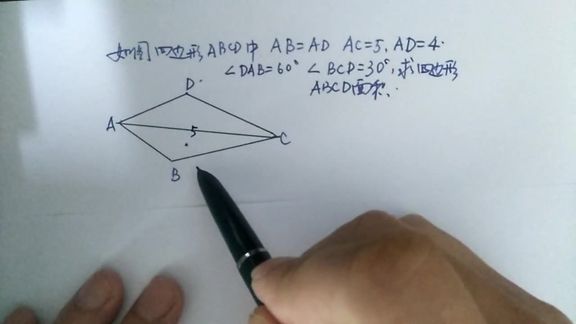 如图四边形ABCD中 AB=AD AC=5, AD=4.
∠DAB=60° ∠BCD=30°, 求四边形
ABCD面积.
D
A
5
C
B